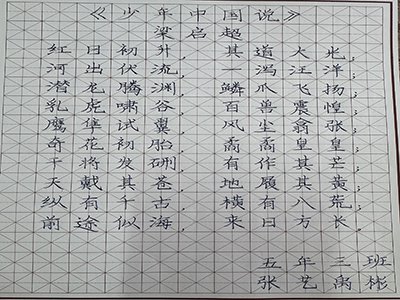 《少年中国说》
梁启超
红日初升，其道大光，
河出伏流，一泻汪洋，
潜龙腾渊，鳞爪飞扬，
乳虎啸谷，百兽震惶；
鹰隼试翼，风尘翕张；
奇花初胎，矞矞皇皇；
干将发硎，有作其芒；
天戴其苍，地履其黄；
纵有千古，横有八荒；
前途似海，来日方长，
五年三班
张艺禹彬